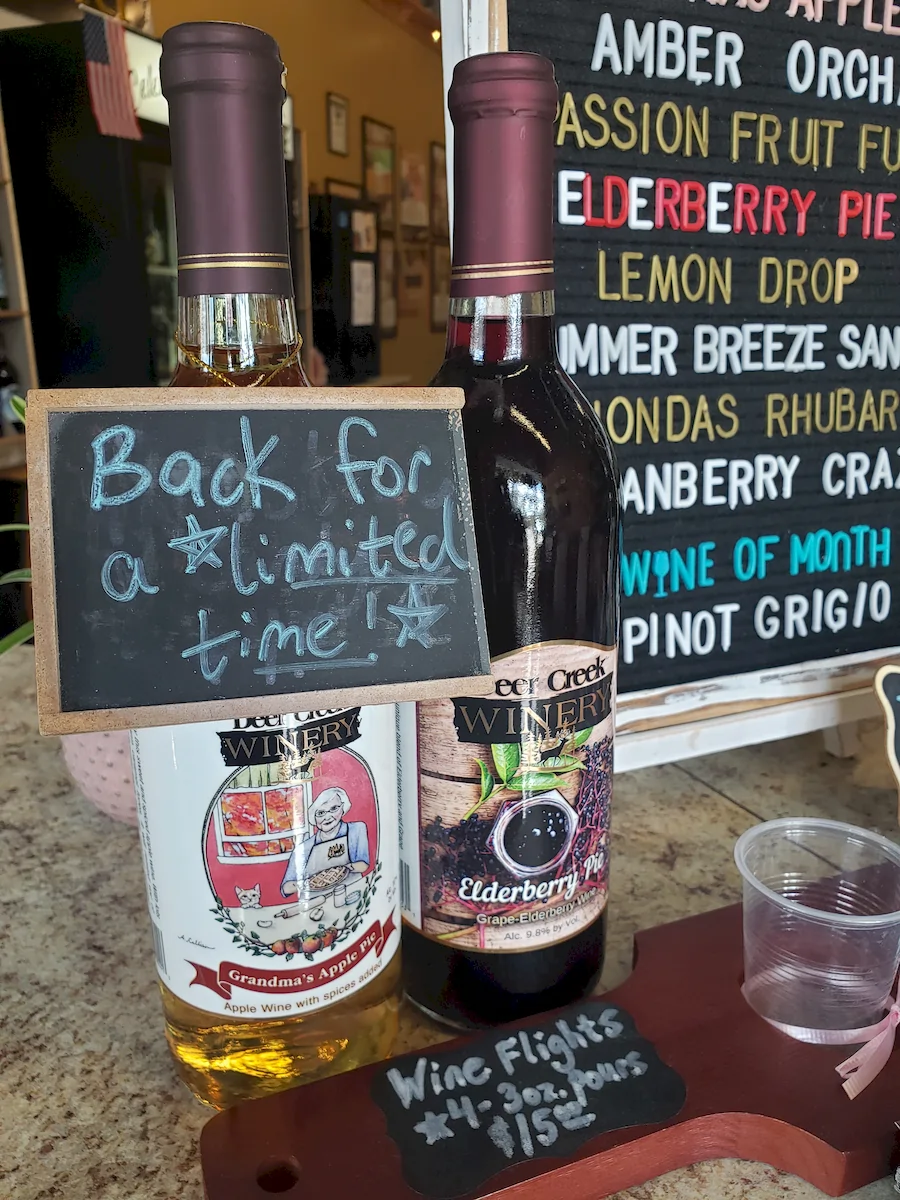 APPLE
AMBER ORCH
PASSION FRUIT FU
ELDERBERRY PIE
LEMON DROP
UMMER BREEZE SAN
ONDAS RHUBAR
ANBERRY CRAZ
WINE OF MONTH
PINOT GRIG/O
Back for
a limited
time!
Deer Creek
WINERY
Grandma's Apple Pie
Apple Wine with spices added
eer Creek
WINERY
Elderberry Pie
Grape-Elderberry Wine
Alc. 9.8% by Vol.
Wine Flights
4- 3oz. pours
$15.00